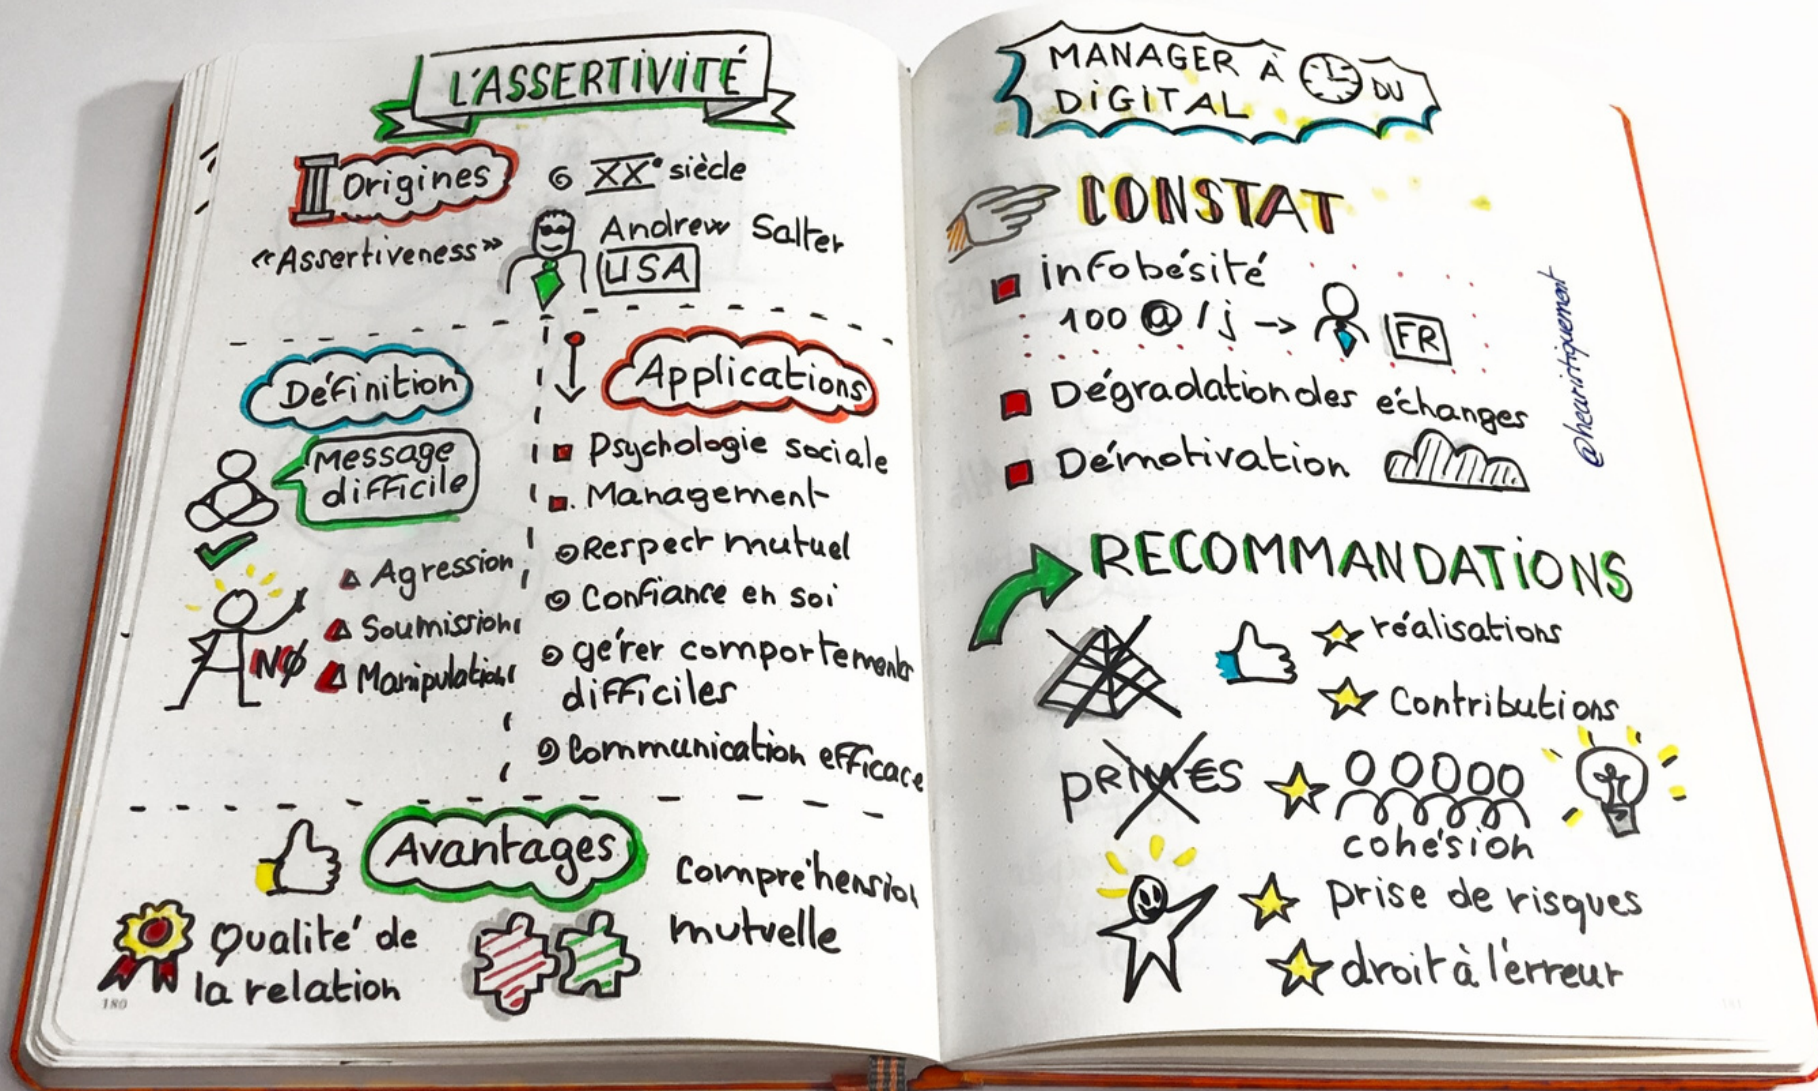 L'ASSERTIVITÉ
Origines
XXe siècle
«Assertiveness»
Andrew Salter
USA
Définition
Message
difficile
Agression
Soumission
Manipulation
NO
Applications
Psychologie sociale
Management
Respect mutuel
Confiance en soi
gérer comportements
difficiles
Communication efficace
Avantages
Qualité de
la relation
Compréhension
mutuelle
180
MANAGER À DU
DIGITAL
CONSTAT
infobésité
100 @ / j →
FR
Dégradation des échanges
Démotivation
@heuristiquement
RECOMMANDATIONS
réalisations
Contributions
PRIM€S
cohésion
prise de risques
droit à l'erreur